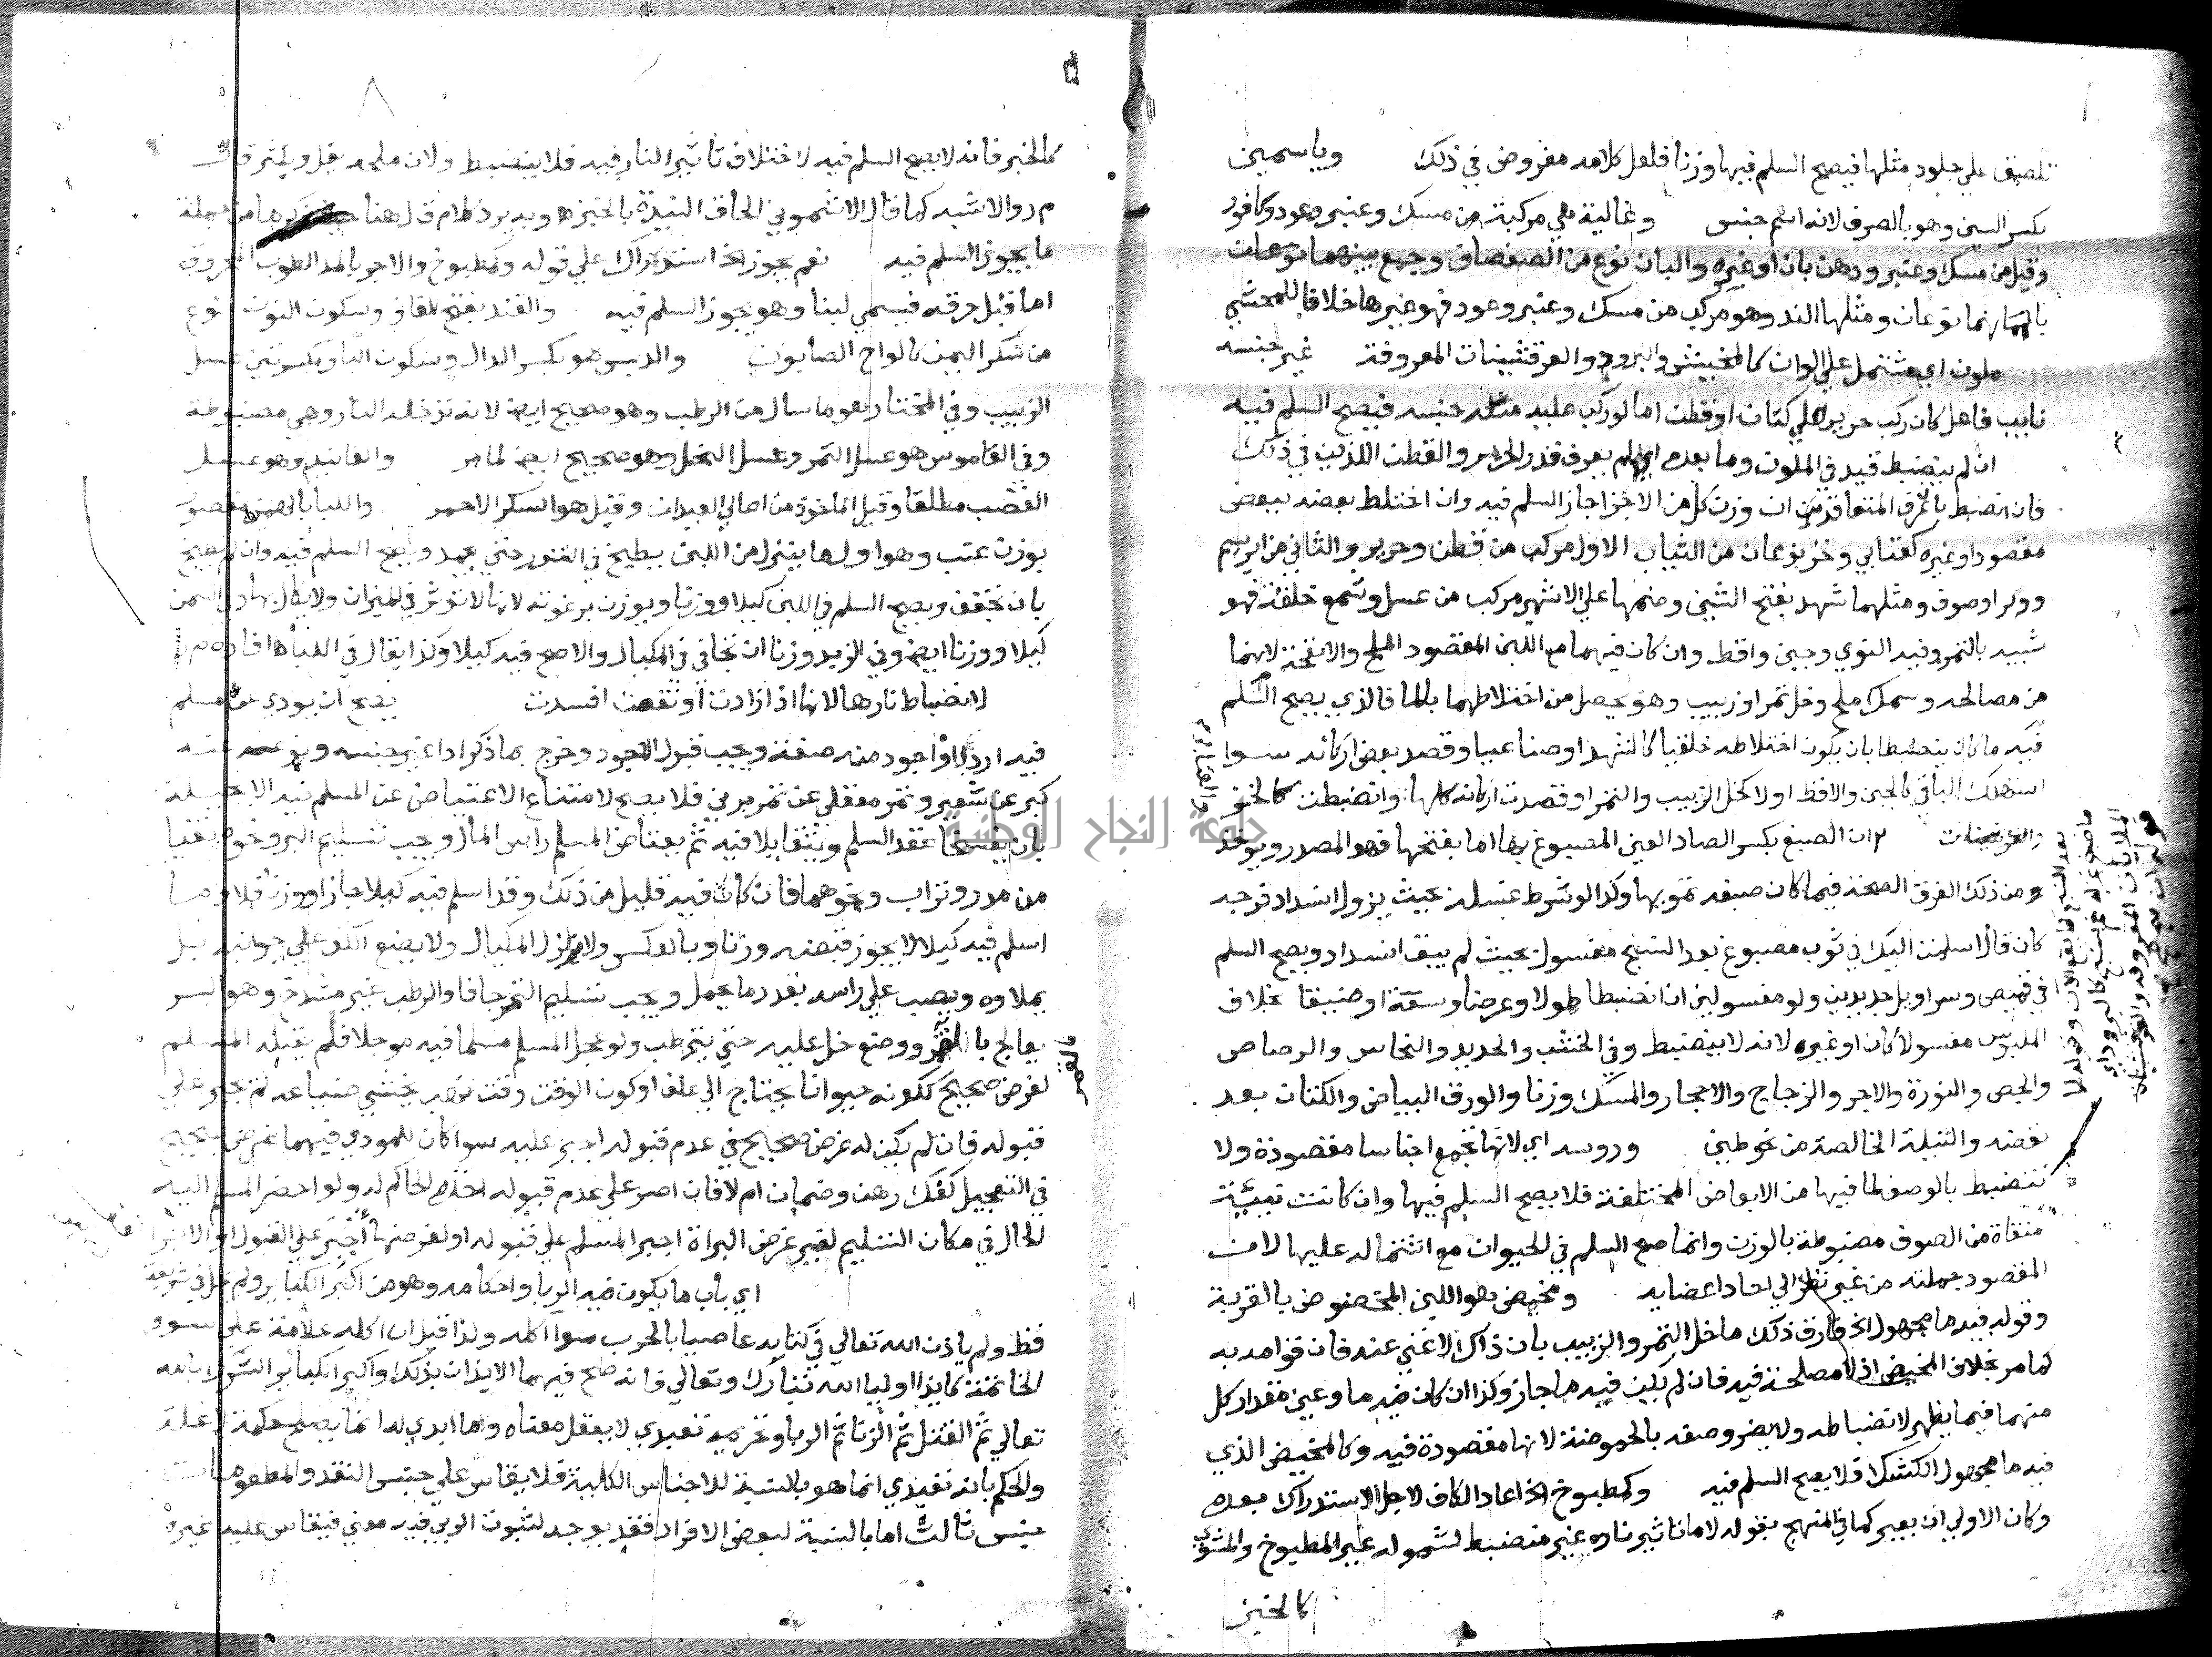 تلصق علي جلود مثلها فيصح السلم فيها وزنا فلعل كلامه مفروض في ذلك وياسمين
بكسر السين وهو بالصرف لانه اسم جنس وغالية هي مركبة من مسك وعنبر وعود وكافور
وقيل من مسك وعنبر ودهن بان او غيره والبان نوع من الصفصاف وجمع بينهما
نوعان ومثلها الند وهو مركب من مسك وعنبر وعود فهو غيرها خلافا للمحشي
ملون اي مشتمل علي الوان كالمخيش والبرود المعروفة غير جنسه
نايب فاعل كان ركب حرير علي كتان او قطن اما لو ركب عليه مثله جنسه فيصح السلم فيه
ان لم ينضبط قيد في الملون وما بعده اي لم يعرف قدر الحرير والقطن اللذين في ذلك
فان انضبط بان عرف المتعاقدين ان وزن كل من الاجزا جاز السلم فيه وان اختلط بعضه ببعض
مقصودا وغيره كعتابي وخز نوعان من الثياب الاول مركب من قطن وحرير والثاني من ابريسم
ووبر او صوف ومثلهما شهد بفتح الشين وضمها علي الاشهر مركب من عسل وشمع خلقة فهو
شبيه بالتمر وفيه النوي وجبن واقط وان كان فيهما مع اللبن المقصود الملح والانفحة لانهما
من مصالحه وسمك ملح وخل تمر او زبيب وهو يحصل من اختلاطهما بالما فالذي يصح السلم
فيه ما كان ينضبطا بان يكون اختلاطه خلقيا كالشهد او صناعيا وقصد بعض اركانه سوا
استهلك الباقي كالجبن والاقط اولا كخل الزبيب والتمر او قصدت اركانه كلها وانضبطت كالخز
ان الصبغ بكسر الصاد العين المصبوغ بها اما بفتحها فهو المصدر ويوخذ
من ذلك الفرق الصحة فيما كان صبغه تمويها وكذا لو شرط غسله بحيث يزول انسداد فرجه
كان قال اسلمت اليك في ثوب مصبوغ بعد النسج مغسول بحيث لم يبق انسداد ويصح السلم
في قميص وسراويل جديدين ولو مغسولين ان انضبطا طولا وعرضا وسعة او ضيقا بخلاف
الملبوس مغسولا كان او غيره لانه لا ينضبط وفي الخشب والحديد والنحاس والرصاص
والجص والنورة والاجر والزجاج والاحجار والمسك وزنا والورق البياض والكتان بعد
نفضه والتنبلة الخالصة من نحو طين وروسه اي لانها تجمع اجناسا مقصودة ولا
تنضبط بالوصف لما فيها من الابعاض المختلفة فلا يصح السلم فيها وان كانت نيئة
منقاة من الصوف مضبوطة بالوزن وانما صح السلم في الحيوان مع اشتماله عليها لان
المقصود جملته من غير نظر الي احاد اعضايه ومخيض هو اللبن المخضوض بالقربة
وقوله فيه ما مجهول الخ فارق ذلك ما خل التمر والزبيب بان ذاك لا غني عنه فان قوامه به
كما مر بخلاف المخيض اذ لا مصلحة فيه فان لم يكن فيه ما جاز وكذا ان كان فيه ما وعين مقدار كل
منهما فيما يظهر لانضباطه ولا يضر وصفه بالحموضة لانها مقصودة فيه وكالمخيض الذي
فيه ما مجهول الكشك فلا يصح السلم فيه وكمطبوخ الخ اعاد الكاف لاجل الاستدراك بعده
وكان الاولي ان يعبر كما في المنهج بقوله لا ما تاثير ناره غير منضبط لشموله غير المطبوخ والمشوي
كالخبز
كالخبز فانه لا يصح السلم فيه لاختلاف تاثير النار فيه فلا ينضبط ولان ملحه يقل ويكثر قال
م ر والاشبه كما قال الاشموني الحاق النيدة بالخبز هـ
ما يجوز السلم فيه نعم يجوز الخ استدراك علي قوله وكمطبوخ والاجر بالمد الطوب المحروق
اما قبل حرقه فيسمي لبنا وهو يجوز السلم فيه والقند بفتح القاف وسكون النون نوع
من سكر اليمن كالواح الصابون والدبس هو بكسر الدال وسكون البا وبكسرتين عسل
الزبيب وفي المختار هو ما سال من الرطب وهو صحيح ايضا لانه تدخله النار وهي مضبوطة
وفي القاموس هو عسل التمر وعسل النحل وهو صحيح ايضا لما مر والفانيد وهو عسل
القصب مطلقا وقيل الماخوذ من اعالي العيدان وقيل هو السكر الاحمر واللبا بالهمز مقصور
بوزن عنب وهو اول ما ينزل من اللبن يطبخ في التنور حتي يجمد ويصح السلم فيه وان لم يطبخ
بان يجفف ويصح السلم في اللبن كيلا ووزنا ويوزن برغوته لانها لا توثر في الميزان ولا يكال بها وفي السمن
كيلا ووزنا ايضا وفي الزبد وزنا ان تجافي في المكيال والاصح فيه كيلا وكذا يقال في اللبا هـ افاده م ر
لانضباط نارها لانها اذا زادت او نقصت افسدت يصح ان يودي عن مسلم
فيه اردا او اجود منه صفة ويجب قبول الاجود وخرج بما ذكر ادا غير جنسه ونوعه عنه
كبر عن شعير وتمر معقلي عن تمر برني فلا يصح لامتناع الاعتياض عن المسلم فيه الا بحيلة
بان يفسخا عقد السلم ويتقايلا فيه ثم يعتاض المسلم راس المال ويجب تسليم البر ونحوه نقيا
من مدر وتراب ونحوهما فان كان فيه قليل من ذلك وقد اسلم فيه كيلا جاز او وزنا فلا وما
اسلم فيه كيلا لا يجوز قبضه وزنا وبالعكس ولا يزلزل المكيال ولا يضع الكف علي جوانبه بل
يملاوه ويصب علي راسه بقدر ما يحمل ويجب تسليم التمر جافا والرطب غير مشدخ وهو البسر
يعالج بالغمر ووضع خل عليه حتي يترطب ولو عجل المسلم مسلما فيه موجلا فلم يقبله المسلم
لغرض صحيح ككونه حيوانا يحتاج الي علف او كون الوقت وقت نهب يخشي ضياعه لم يجبر علي
قبوله فان لم يكن له غرض صحيح في عدم قبوله اجبر عليه سوا كان للمودي فيهما غرض صحيح
في التعجيل كفك رهن وضمان ام لا فان اصر علي عدم قبوله اخذه الحاكم له ولو احضر المسلم اليه
الحال في مكان التسليم لغير غرض البراة اجبر المسلم علي قبوله او لغرضها اجبر علي القبول او الابرا
اي باب ما يكون فيه الربا واحكامه وهو من اكبر الكباير ولم يحل في شريعة
قط ولم ياذن الله تعالي في كتابه عاصيا بالحرب سوا اكله ولذا قيل ان اكله علامة علي سوء
الخاتمة كايذا اوليا الله تبارك وتعالي فانه صح فيهما الايذان بذلك واكبر الكباير الشرك بالله
تعالي ثم القتل ثم الزنا ثم الربا وتحريمه تعبدي لا يعقل معناه وما ابدي له انما يصلح حكمة لا علة
والحكم بانه تعبدي انما هو بالنسبة للاجناس الكلية فلا يقاس علي جنس النقد والمطعومات
جنس ثالث اما بالنسبة لبعض الافراد فقد يوجد لثبوت الربي فيه معني فيقاس عليه غيره
جامعة النجاح الوطنية